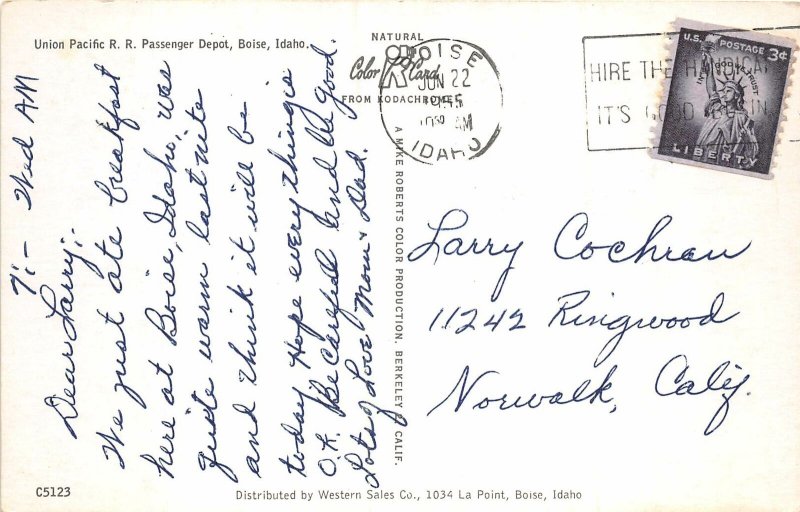 Union Pacific R. R. Passenger Depot, Boise, Idaho.
7:- Wed AM
Dear Larry;-
We just ate breakfast
here at Boise, Idaho, was
quite warm last nite
and think it will be
today Hope everything is
O.K. Be Careful and be good.
Lots of Love Mom & Dad.
NATURAL
Color Card
FROM KODACHROME
A MIKE ROBERTS COLOR PRODUCTION. BERKELEY 2 CALIF.
BOISE
JUN 22
AM
IDAHO
HIRE THE
IT'S GOOD
U.S. POSTAGE 3¢
IN GOD WE TRUST
LIBERTY
Larry Cochran
11242 Ringwood
Norwalk, Calif.
C5123
Distributed by Western Sales Co., 1034 La Point, Boise, Idaho